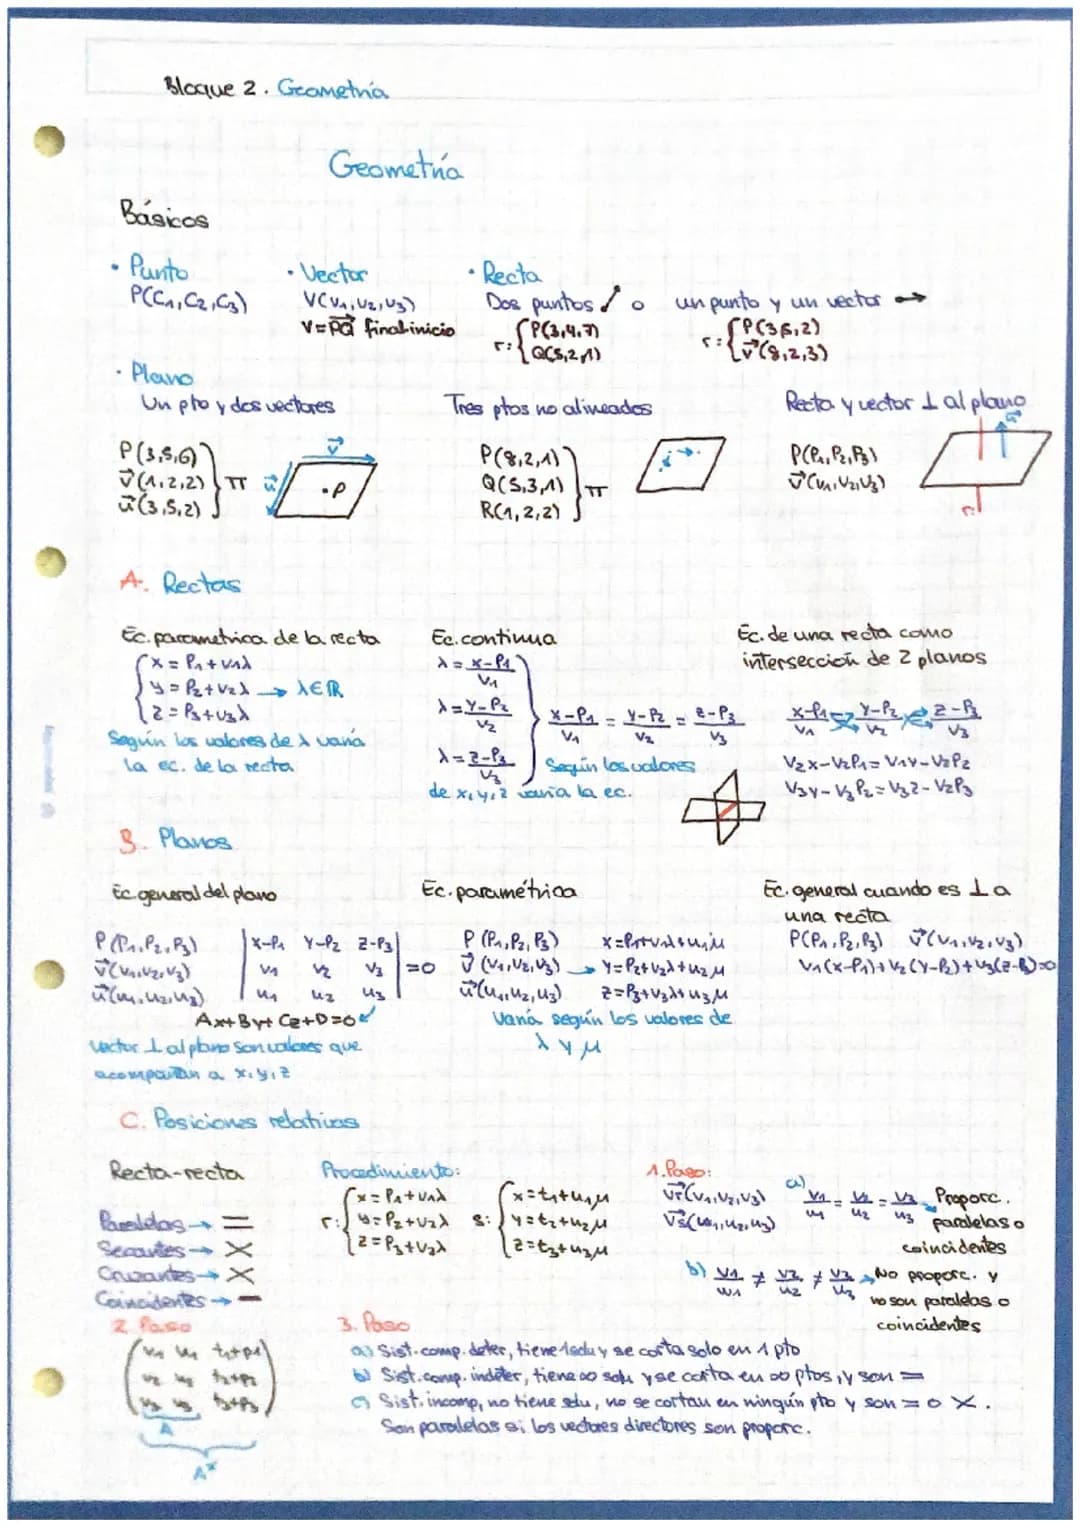 Bloque 2. Geometría
Geometría
Básicos
· Punto
P(C₁,C₂,C₃)
· Vector
V(V₁,V₂,V₃)
V=PQ final-inicio
· Recta
Dos puntos o un punto y un vector →
r:{P(3,4,7)
Q(5,2,1)
r:{P(3,5,2)
v⃗(8,2,3)
· Plano
Un pto y dos vectores
P(3,5,6)
v⃗(1,2,2) } π
u⃗(3,5,2)
v⃗
u⃗
·P
Tres ptos no alineados
P(8,2,1)
Q(5,3,1) } π
R(1,2,2)
Recta y vector ⊥ al plano
P(P₁,P₂,P₃)
v⃗(V₁,V₂,V₃)
r:
A. Rectas
Ec. parametrica de la recta
x = P₁+V₁λ
y = P₂+V₂λ → λ∈ℝ
z = P₃+V₃λ
Según los valores de λ varía
la ec. de la recta
Ec. continua
λ = x-P₁/V₁
λ = y-P₂/V₂
λ = z-P₃/V₃
x-P₁/V₁ = y-P₂/V₂ = z-P₃/V₃
Según los valores
de x,y,z varía la ec.
Ec. de una recta como
intersección de 2 planos
x-P₁/V₁ = y-P₂/V₂ = z-P₃/V₃
V₂x-V₂P₁ = V₁y-V₂P₂
V₃y-V₃P₂ = V₃z-V₂P₃
B. Planos
Ec. general del plano
P(P₁,P₂,P₃)
v⃗(V₁,V₂,V₃)
u⃗(u₁,u₂,u₃)
|x-P₁ y-P₂ z-P₃|
|V₁ V₂ V₃| =0
|u₁ u₂ u₃|
Ax+By+Cz+D=0
Vector ⊥ al plano son valores que
acompañan a x,y,z
Ec. paramétrica
P(P₁,P₂,P₃) x=P₁+V₁λ+u₁μ
v⃗(V₁,V₂,V₃) → y=P₂+V₂λ+u₂μ
u⃗(u₁,u₂,u₃) z=P₃+V₃λ+u₃μ
Varía según los valores de
λ y μ
Ec. general cuando es ⊥ a
una recta
P(P₁,P₂,P₃) v⃗(V₁,V₂,V₃)
V₁(x-P₁)+V₂(y-P₂)+V₃(z-P₃)=0
C. Posiciones relativas
Recta-recta
Paralelas →
Secantes →
Cruzantes →
Coincidentes →
Procedimiento:
r:{x=P₁+V₁λ
y=P₂+V₂λ
z=P₃+V₂λ
s:{x=t₁+u₁μ
y=t₂+u₂μ
z=t₃+u₃μ
1. Paso:
Vr⃗(V₁,V₂,V₃)
Vs⃗(u₁,u₂,u₃)
a) V₁/u₁ = V₂/u₂ = V₃/u₃ → Proporc.
paralelas o
coincidentes
b) V₁/u₁ ≠ V₂/u₂ ≠ V₃/u₃ → No proporc. y
no son paralelas o
coincidentes
2. Paso
V₁ u₁ t₁+p₁
V₂ u₂ t₂+p₂
V₃ u₃ t₃+p₃
A
A*
3. Paso
a) Sist. comp. deter, tiene 1 solu y se corta solo en 1 pto
b) Sist. comp. indeter, tiene ∞ solu y se corta en ∞ ptos, y son =
c) Sist. incomp, no tiene solu, no se cortan en ningún pto y son = o X.
Son paralelas si los vectores directores son proporc.